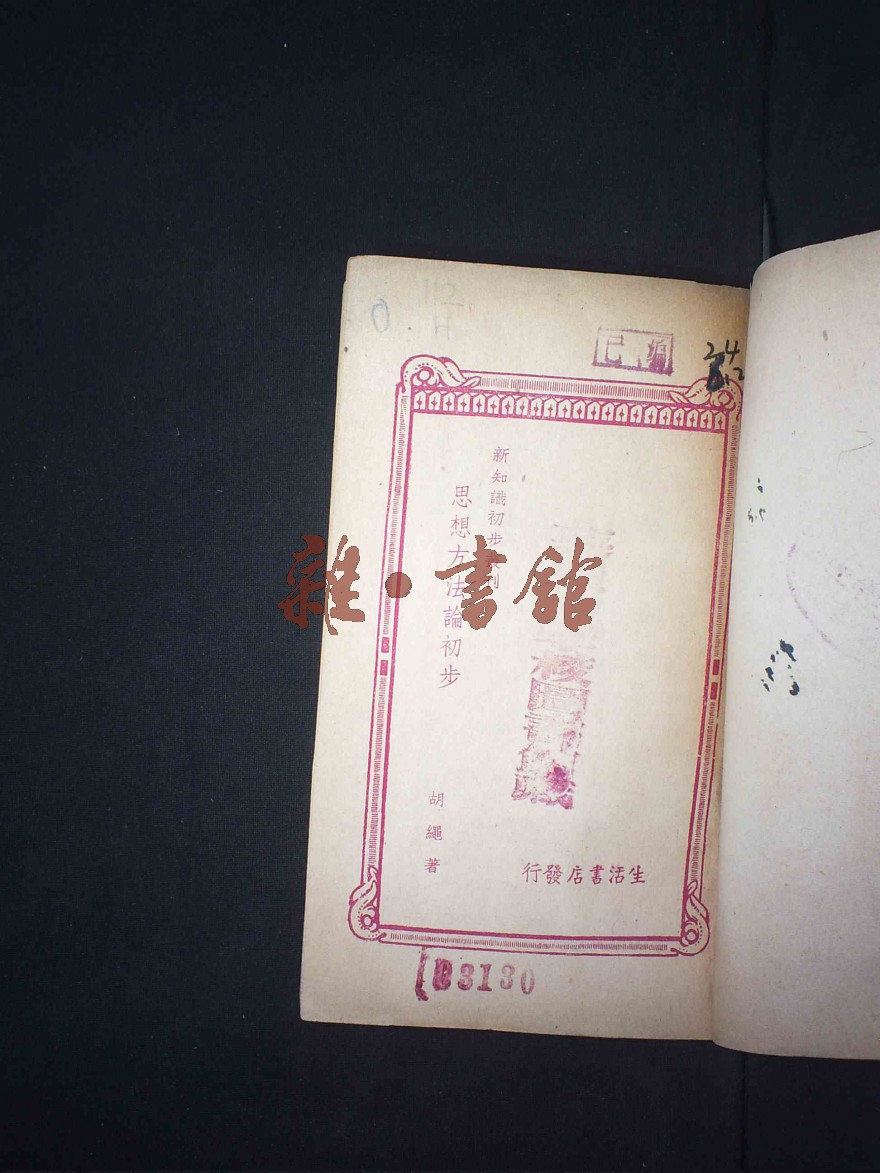 112
H
0
編已
24
新知識初步叢刊
思想方法論初步
胡繩著
生活書店發行
B3130
雜·書館